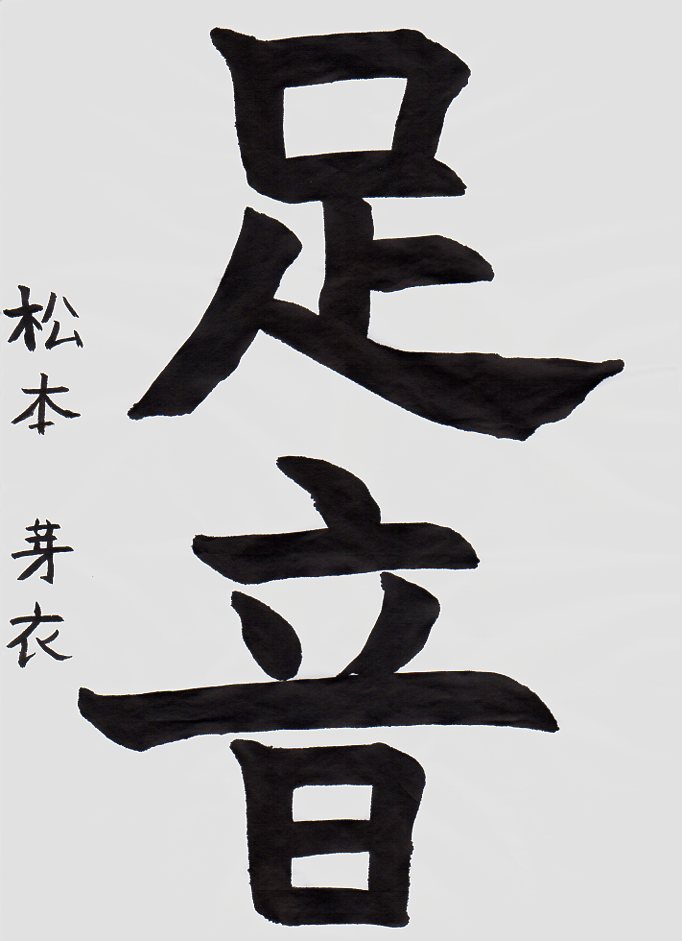 足音
松本 芽衣